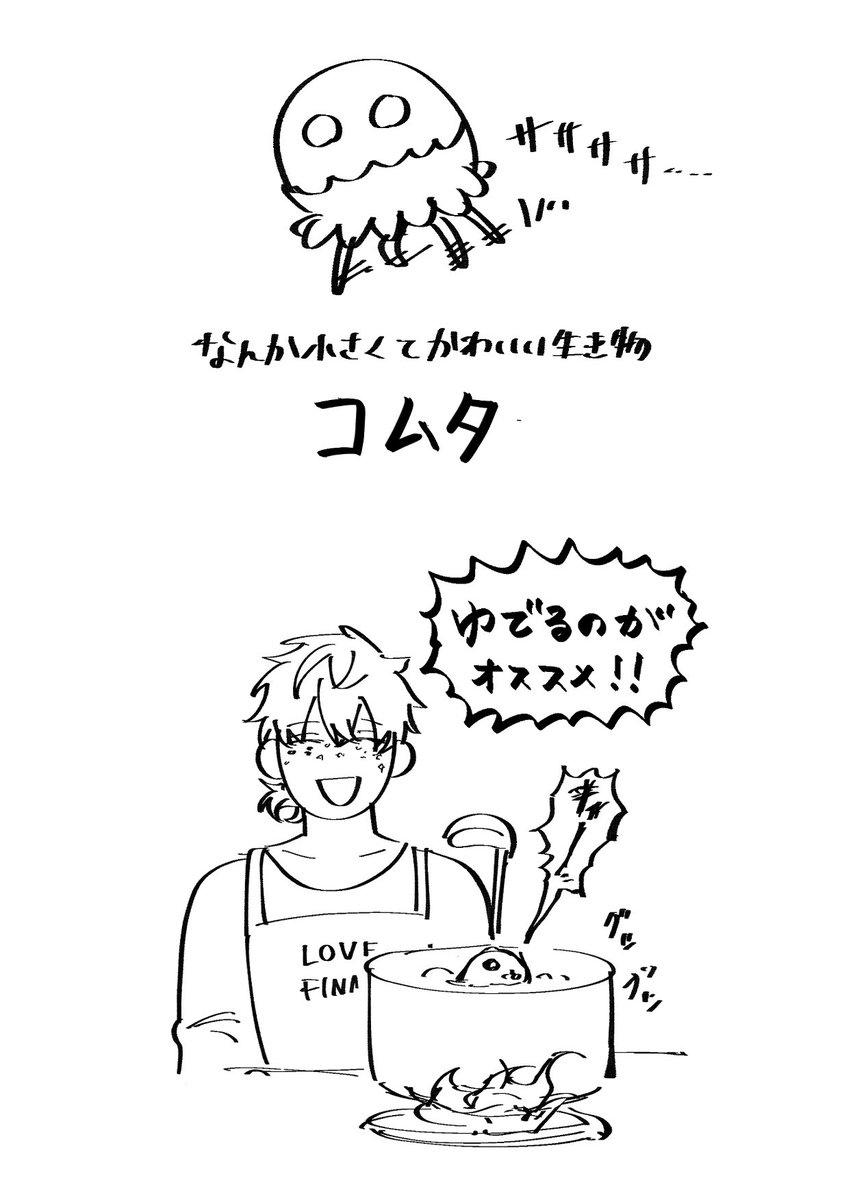 ササササ……
なんか小さくてかわいい生き物
コムタ
ゆでるのが
オススメ!!
グツ
グツ
LOVE
FINA